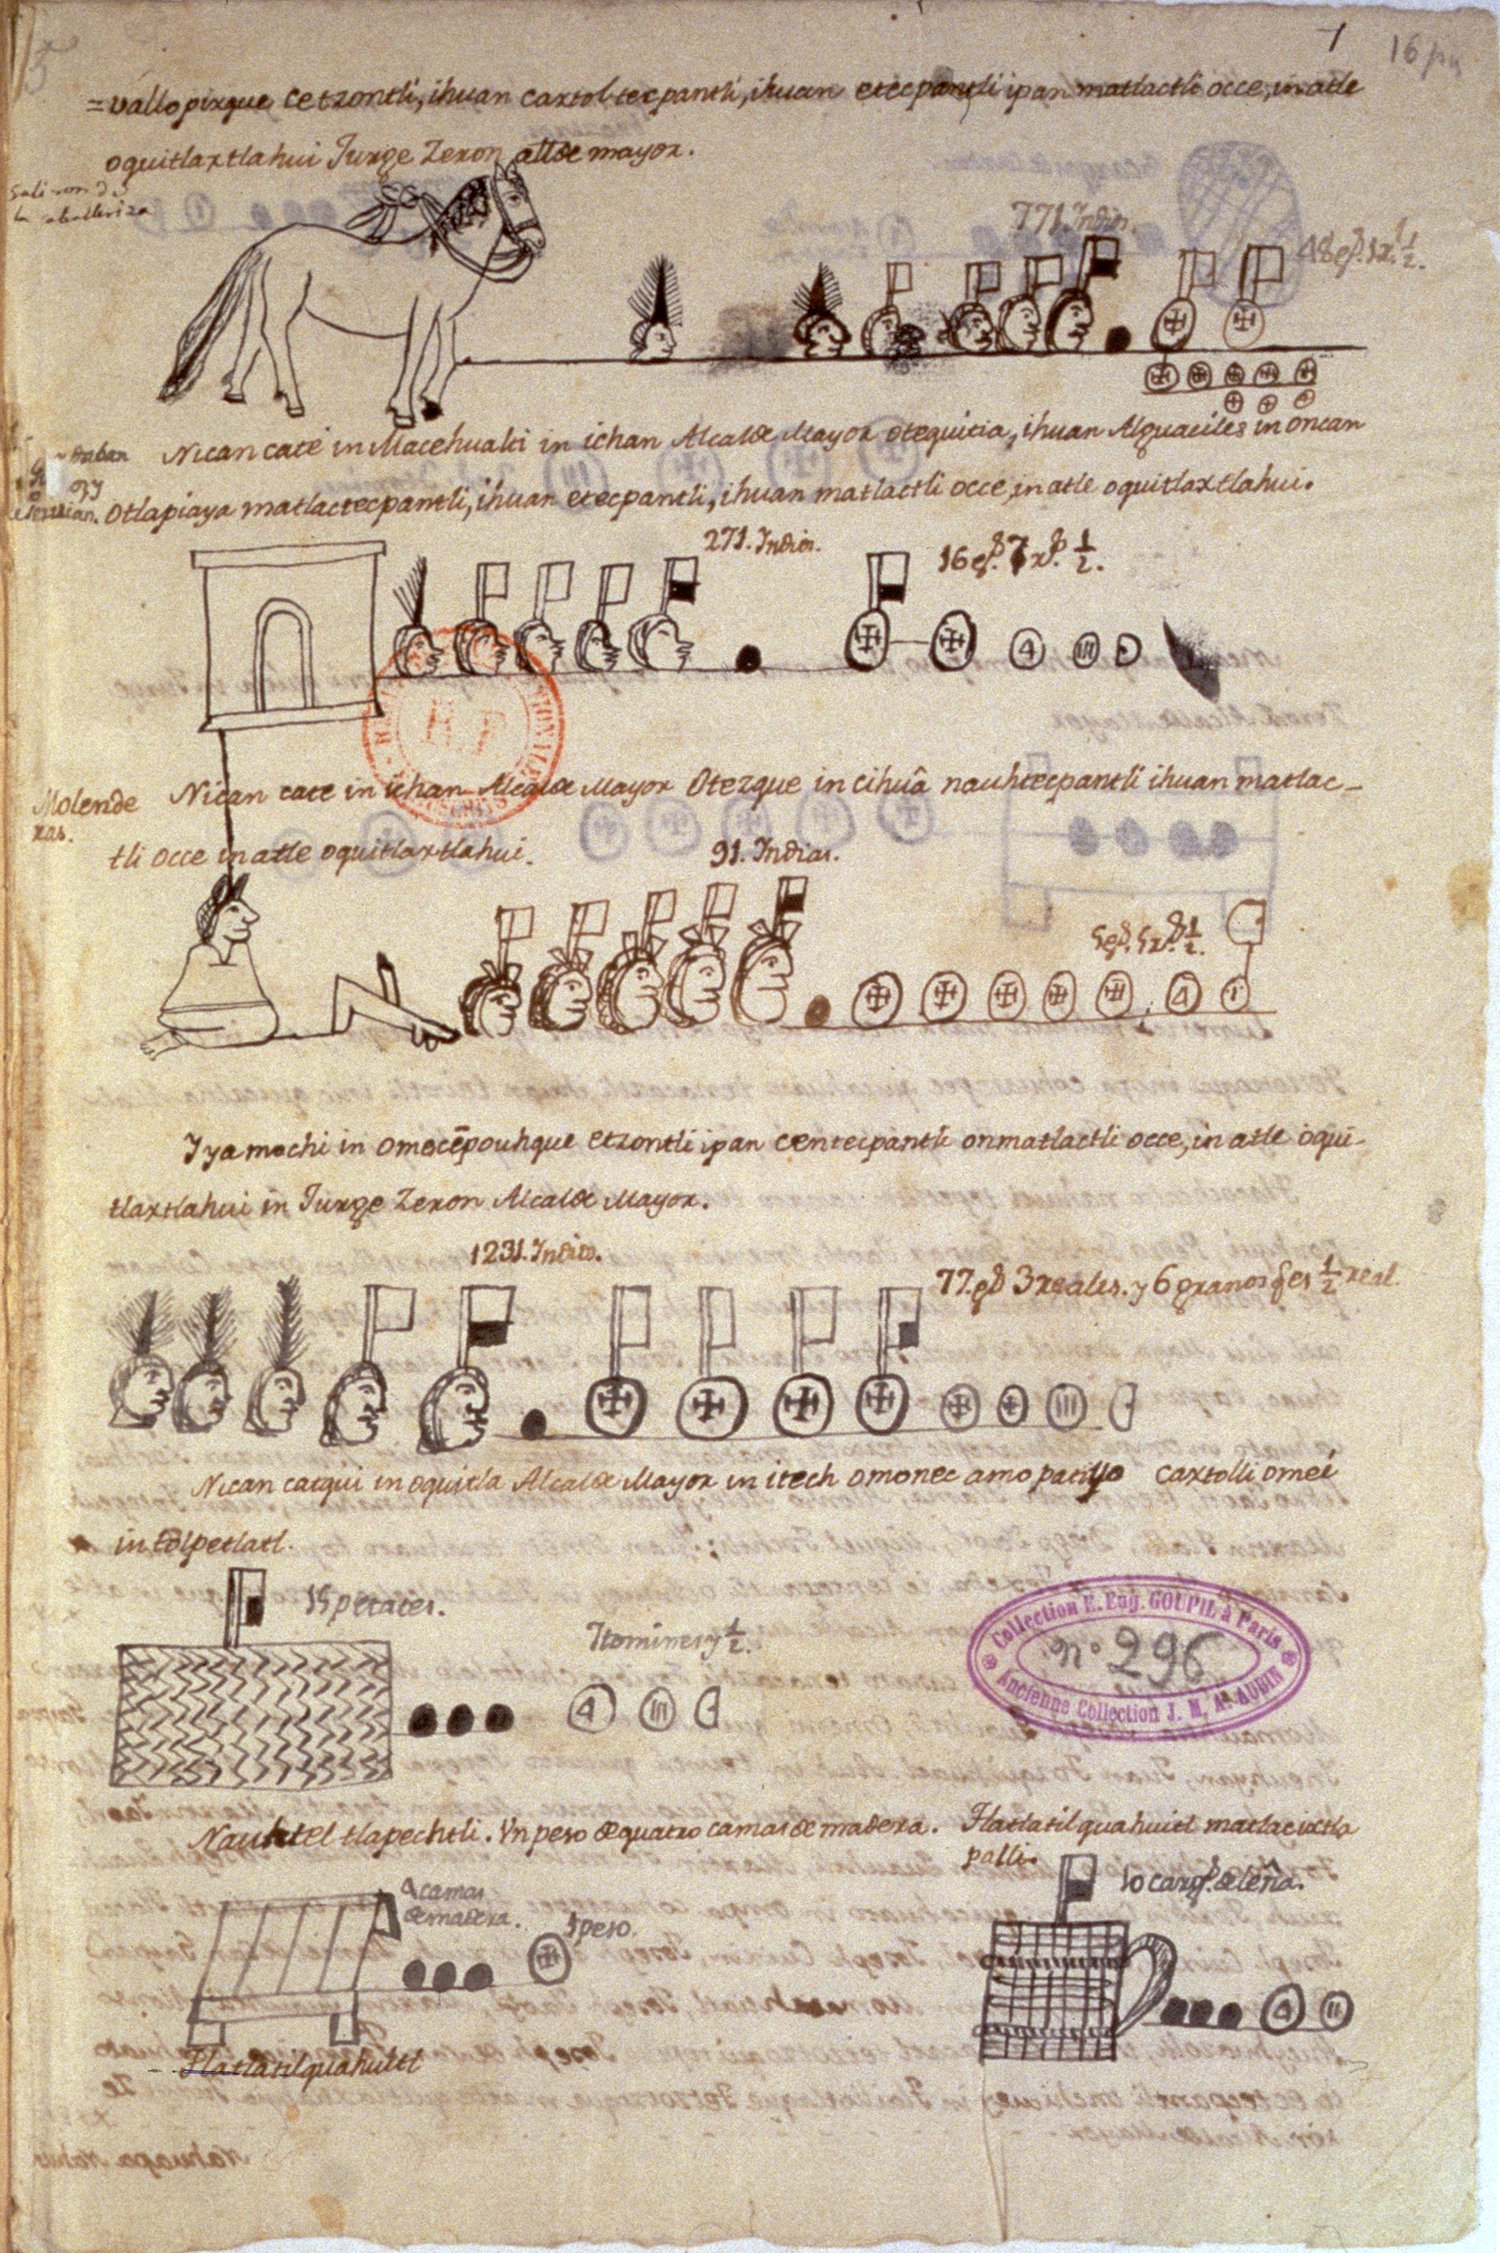 1
16
=vallopixque cetzontli, ihuan caxtol-tecpantli, ihuan etecpantli ipan matlactli occe, in atle
oquitlaxtlahui Jurge Zeron allde mayor.
771. Indios.
48 ps. 1 r. 1/2.
Nican cate in Macehualti in ichan Alcalde Mayor otequitia, ihuan Alguaciles in oncan
otlapiaya matlactecpantli, ihuan etecpantli, ihuan matlactli occe, in atle oquitlaxtlahui.
271. Indios.
16 ps. 7 rs. 1/2.
4 III
Molende
ras.
Nican cate in ichan Alcalde Mayor Otezque in cihuâ nauhtecpantli ihuan matlac-
tli occe in atle oquitlaxtlahui.
91. Indias.
5 ps. 5 rs. 1/2.
4 1
Yya mochi in omocēpouhque etzontli ipan centecpantli onmatlactli occe, in atle oqui-
tlaxtlahui in Jurge Zeron Alcalde Mayor.
1231. Indios.
77. ps 3 reales. y 6 granos qe es 1/2 real.
III
Nican catqui in oquitla Alcalde Mayor in itech omonec amo patiyo caxtolli omei
in tōlpetlatl.
15 petates.
7 tomines y 1/2.
4 III
Collection E. Eug. GOUPIL à Paris
n° 296
Ancienne Collection J. M. A. AUBIN
Nauhtel tlapechtli. Vn peso de quatro camas de madera.
Tlatlatilquahuitl matlacixtla
palli.
4 camas
de madera.
1 peso.
10 cargs. de leña.
4 II
Tlatlatilquahuitl